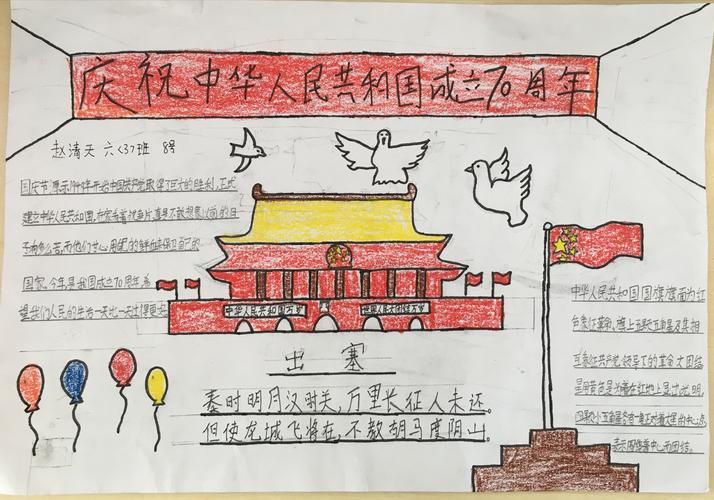 庆祝中华人民共和国成立70周年
赵清天 六<3>班 8号
国庆节,展示1949年开始中国共产党取得了巨大的胜利,正式
建立中华人民共和国,在家看着祝福片,真是不敢想象以前的日
子有多么苦,而他们甘心用他的鲜血来保卫自己的
国家,今年是我国成立70周年,希
望我们人民的生活一天比一天过得更好
中华人民共和国万岁
世界人民大团结万岁
出塞
秦时明月汉时关,万里长征人未还。
但使龙城飞将在,不教胡马度阴山。
中华人民共和国国旗旗面为红
色象征革命,旗上五颗五角星及其相
互象征共产党领导下的革命大团结
星用黄色是为着在红地上显出光明,
四颗小五角星各有一角正对着大星的中心点
表示围绕着中心而团结。